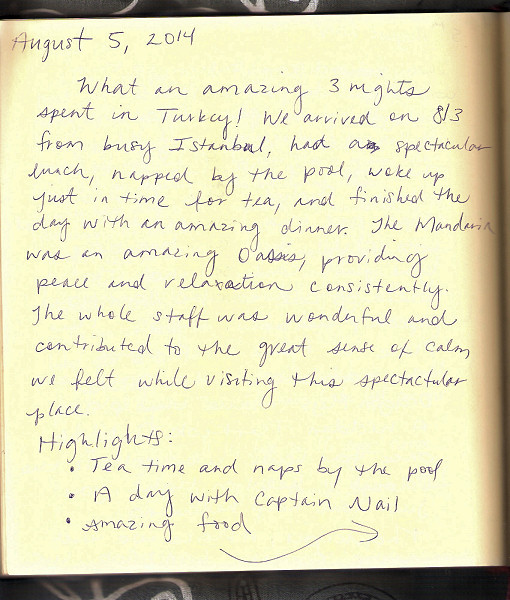 August 5, 2014
What an amazing 3 nights
spent in Turkey! We arrived on 8/3
from busy Istanbul, had a spectacular
lunch, napped by the pool, woke up
just in time for tea, and finished the
day with an amazing dinner. The Mandarin
was an amazing Oasis, providing
peace and relaxation consistently.
The whole staff was wonderful and
contributed to the great sense of calm
we felt while visiting this spectactular
place.
Highlights:
• Tea time and naps by the pool
• A day with Captain Nail
• Amazing food